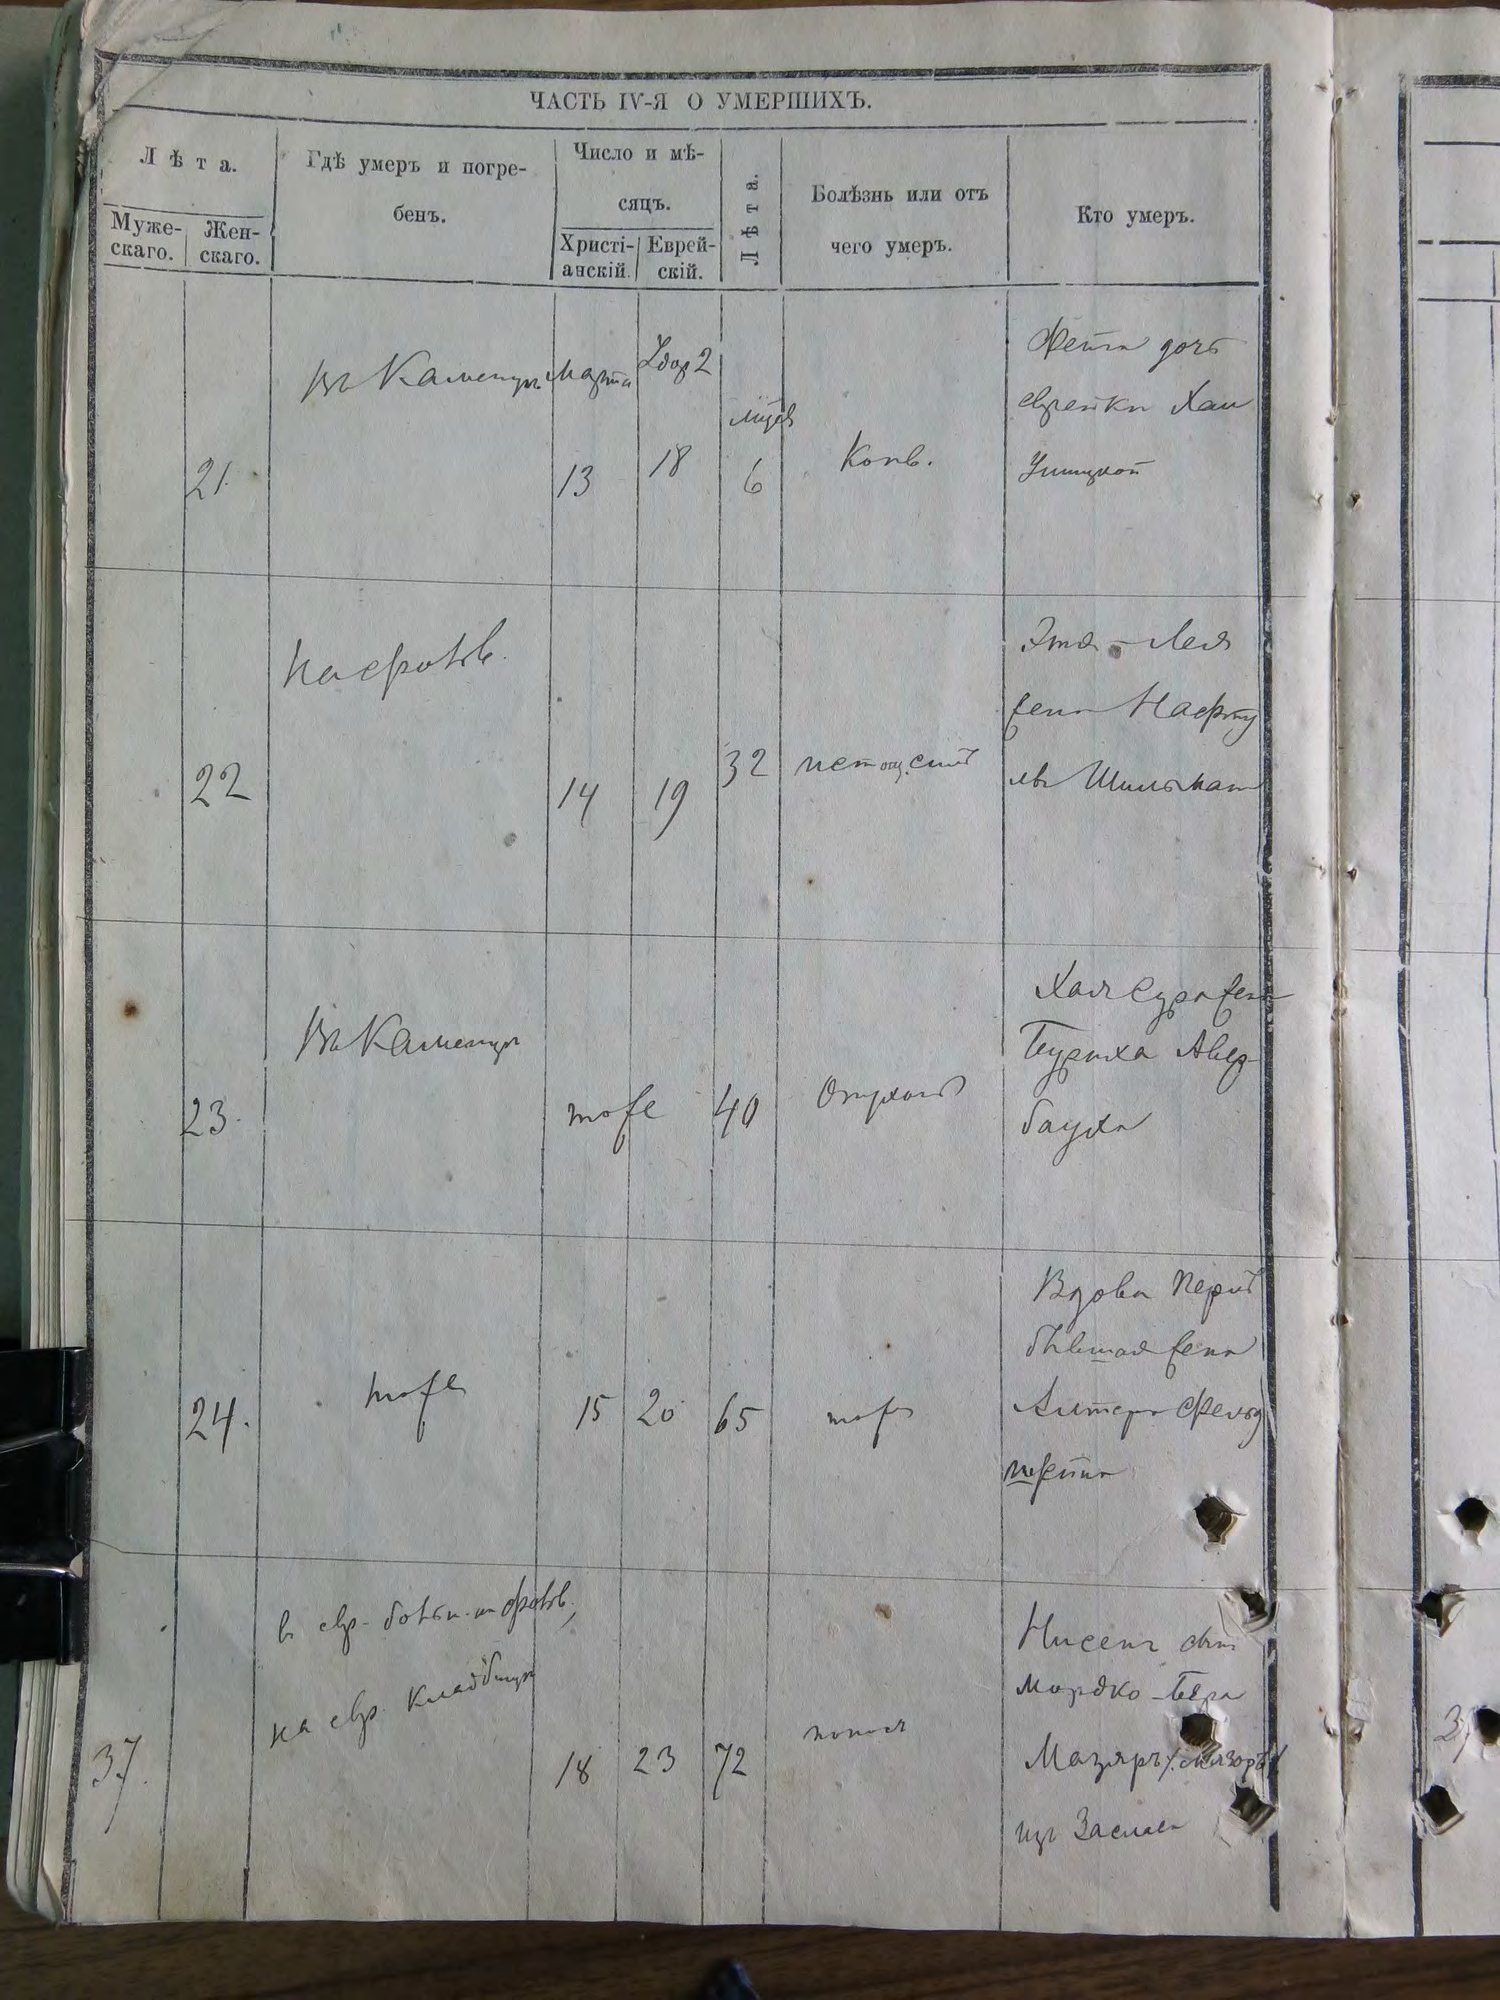 ЧАСТЬ IV-Я О УМЕРШИХЪ.
Лѣта.
Муже-
скаго.
Жен-
скаго.
Гдѣ умеръ и погре-
бенъ.
Число и мѣ-
сяцъ.
Христі-
анскій.
Еврей-
скій.
Лѣта.
Болѣзнь или отъ
чего умеръ.
Кто умеръ.
21.
въ Каменцѣ
Марта
13
Адор 2
18
6
Конв.
Фейга дочь
еврейки Хаи
Ушицкой
22
14
19
32
истощеніе
Этля-Лея
жена Нафту
лы Шильман
23.
Въ Каменцѣ
тоже
40
Опухоль
Хая Сура жена
Боруха Авер-
бауха
24.
тоже
15
20
65
тоже
Вдова Перль
бывшая жена
Алтера Фельд
37.
в евр. больн.
на евр. кладбищѣ
18
23
72
Нисенъ сынъ
Мордко-Бера
Мазяръ (Мазоръ)
изъ Заслав